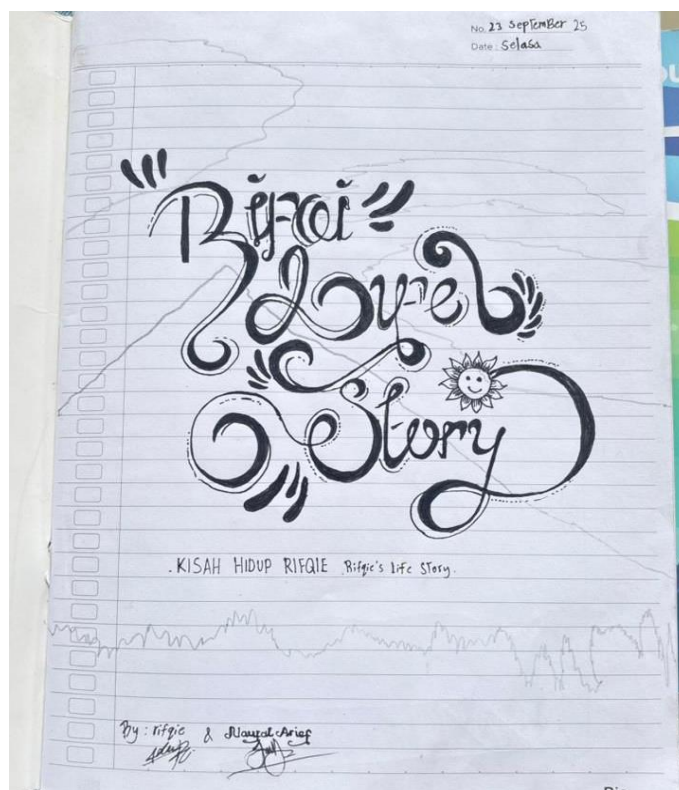 No. 23 September 25
Date : Selasa
Rifqi
Lyfe
Story
. KISAH HIDUP RIFQIE Rifqie's life Story.
By : rifqie & Nauval Arief